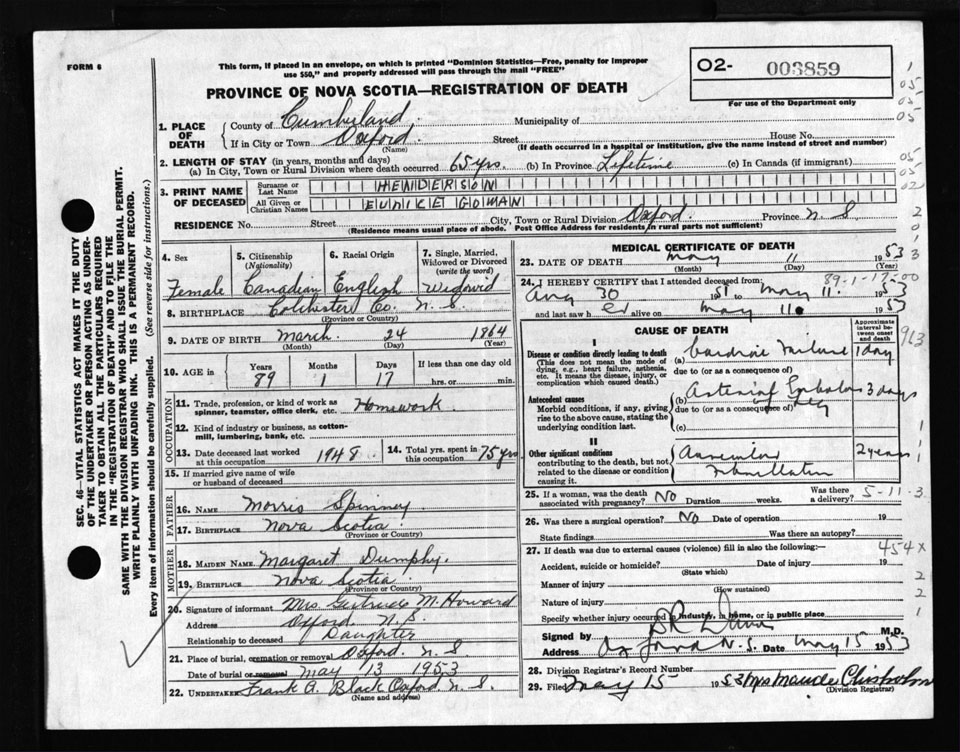 FORM 6
This form, if placed in an envelope, on which is printed "Dominion Statistics—Free, penalty for improper
use $50," and properly addressed will pass through the mail "FREE"
O2- 003859
For use of the Department only
PROVINCE OF NOVA SCOTIA—REGISTRATION OF DEATH
1. PLACE OF DEATH
County of Cumberland Municipality of
If in City or Town Oxford Street House No.
(Name) (If death occurred in a hospital or institution, give the name instead of street and number)
2. LENGTH OF STAY (in years, months and days)
(a) In City, Town or Rural Division where death occurred 65 yrs. (b) In Province Lifetime (c) In Canada (if immigrant)
3. PRINT NAME OF DECEASED
Surname or Last Name HENDERSON
All Given or Christian Names EUNICE GOMAN
RESIDENCE No. Street City, Town or Rural Division Oxford. Province N. S
(Residence means usual place of abode. Post Office Address for residents in rural parts not sufficient)
4. Sex
Female
5. Citizenship
(Nationality)
Canadian
6. Racial Origin
English
7. Single, Married, Widowed or Divorced
(write the word)
Widowid
8. BIRTHPLACE Colchester Co. N. S.
(Province or Country)
9. DATE OF BIRTH March 24 1864
(Month) (Day) (Year)
10. AGE in
Years Months Days If less than one day old
89 1 17 hrs. or min.
OCCUPATION
11. Trade, profession, or kind of work as
spinner, teamster, office clerk, etc. Homework
12. Kind of industry or business, as cotton-
mill, lumbering, bank, etc.
13. Date deceased last worked
at this occupation 1948.
14. Total yrs. spent in
this occupation 75 yrs
15. If married give name of wife
or husband of deceased
FATHER
16. NAME Morris Spinney
17. BIRTHPLACE Nova Scotia.
(Province or Country)
MOTHER
18. MAIDEN NAME Margaret Dumphy.
19. BIRTHPLACE Nova Scotia.
(Province or Country)
20. Signature of informant Mrs. Gertrude M. Howard
Address Oxford. N.S.
Relationship to deceased Daughter
21. Place of burial, cremation or removal Oxford. N. S
Date of burial or removal May 13 1953
22. UNDERTAKER Frank A. Black Oxford. N. S.
(Name and address)
MEDICAL CERTIFICATE OF DEATH
23. DATE OF DEATH May 11 1953
(Month) (Day) (Year)
89-1-17-00
24. I HEREBY CERTIFY that I attended deceased from
Aug 30 1951 to May 11. 1953
and last saw her alive on May 11. 1953
CAUSE OF DEATH
Approximate interval between onset and death
I
Disease or condition directly leading to death
(This does not mean the mode of dying, e.g., heart failure, asthenia, etc. It means the disease, injury, or complication which caused death.)
(a) Cardiac Failure 1 day
due to (or as a consequence of)
Antecedent causes
Morbid conditions, if any, giving rise to the above cause, stating the underlying condition last.
(b) Arterial Embolus 3 days
due to (or as a consequence of) of leg
(c)
II
Other significant conditions
contributing to the death, but not related to the disease or condition causing it.
Auricular Fibrillation 2 years
25. If a woman, was the death
associated with pregnancy? No Duration weeks. Was there a delivery?
5-11-3
26. Was there a surgical operation? No Date of operation 19
State findings Was there an autopsy?
27. If death was due to external causes (violence) fill in also the following:—
454X
Accident, suicide or homicide? Date of injury 19
(State which)
Manner of injury
(How sustained)
Nature of injury
Specify whether injury occurred in industry, in home, or in public place
Signed by M.D.
Address Oxford N. S. Date May 15 1953
28. Division Registrar's Record Number
29. Filed May 15 1953 Mrs Maude Chisholm
(Division Registrar)
SEC. 46—VITAL STATISTICS ACT MAKES IT THE DUTY
OF THE UNDERTAKER OR PERSON ACTING AS UNDER-
TAKER TO OBTAIN ALL THE PARTICULARS REQUIRED
IN THE "REGISTRATION OF DEATH" AND TO FILE THE
SAME WITH THE DIVISION REGISTRAR WHO SHALL ISSUE THE BURIAL PERMIT.
WRITE PLAINLY WITH UNFADING INK. THIS IS A PERMANENT RECORD.
Every item of information should be carefully supplied. (See reverse side for instructions.)
1
05
05
05
05
05
02
2
0
1
3
963
1
1
1
2
2
1